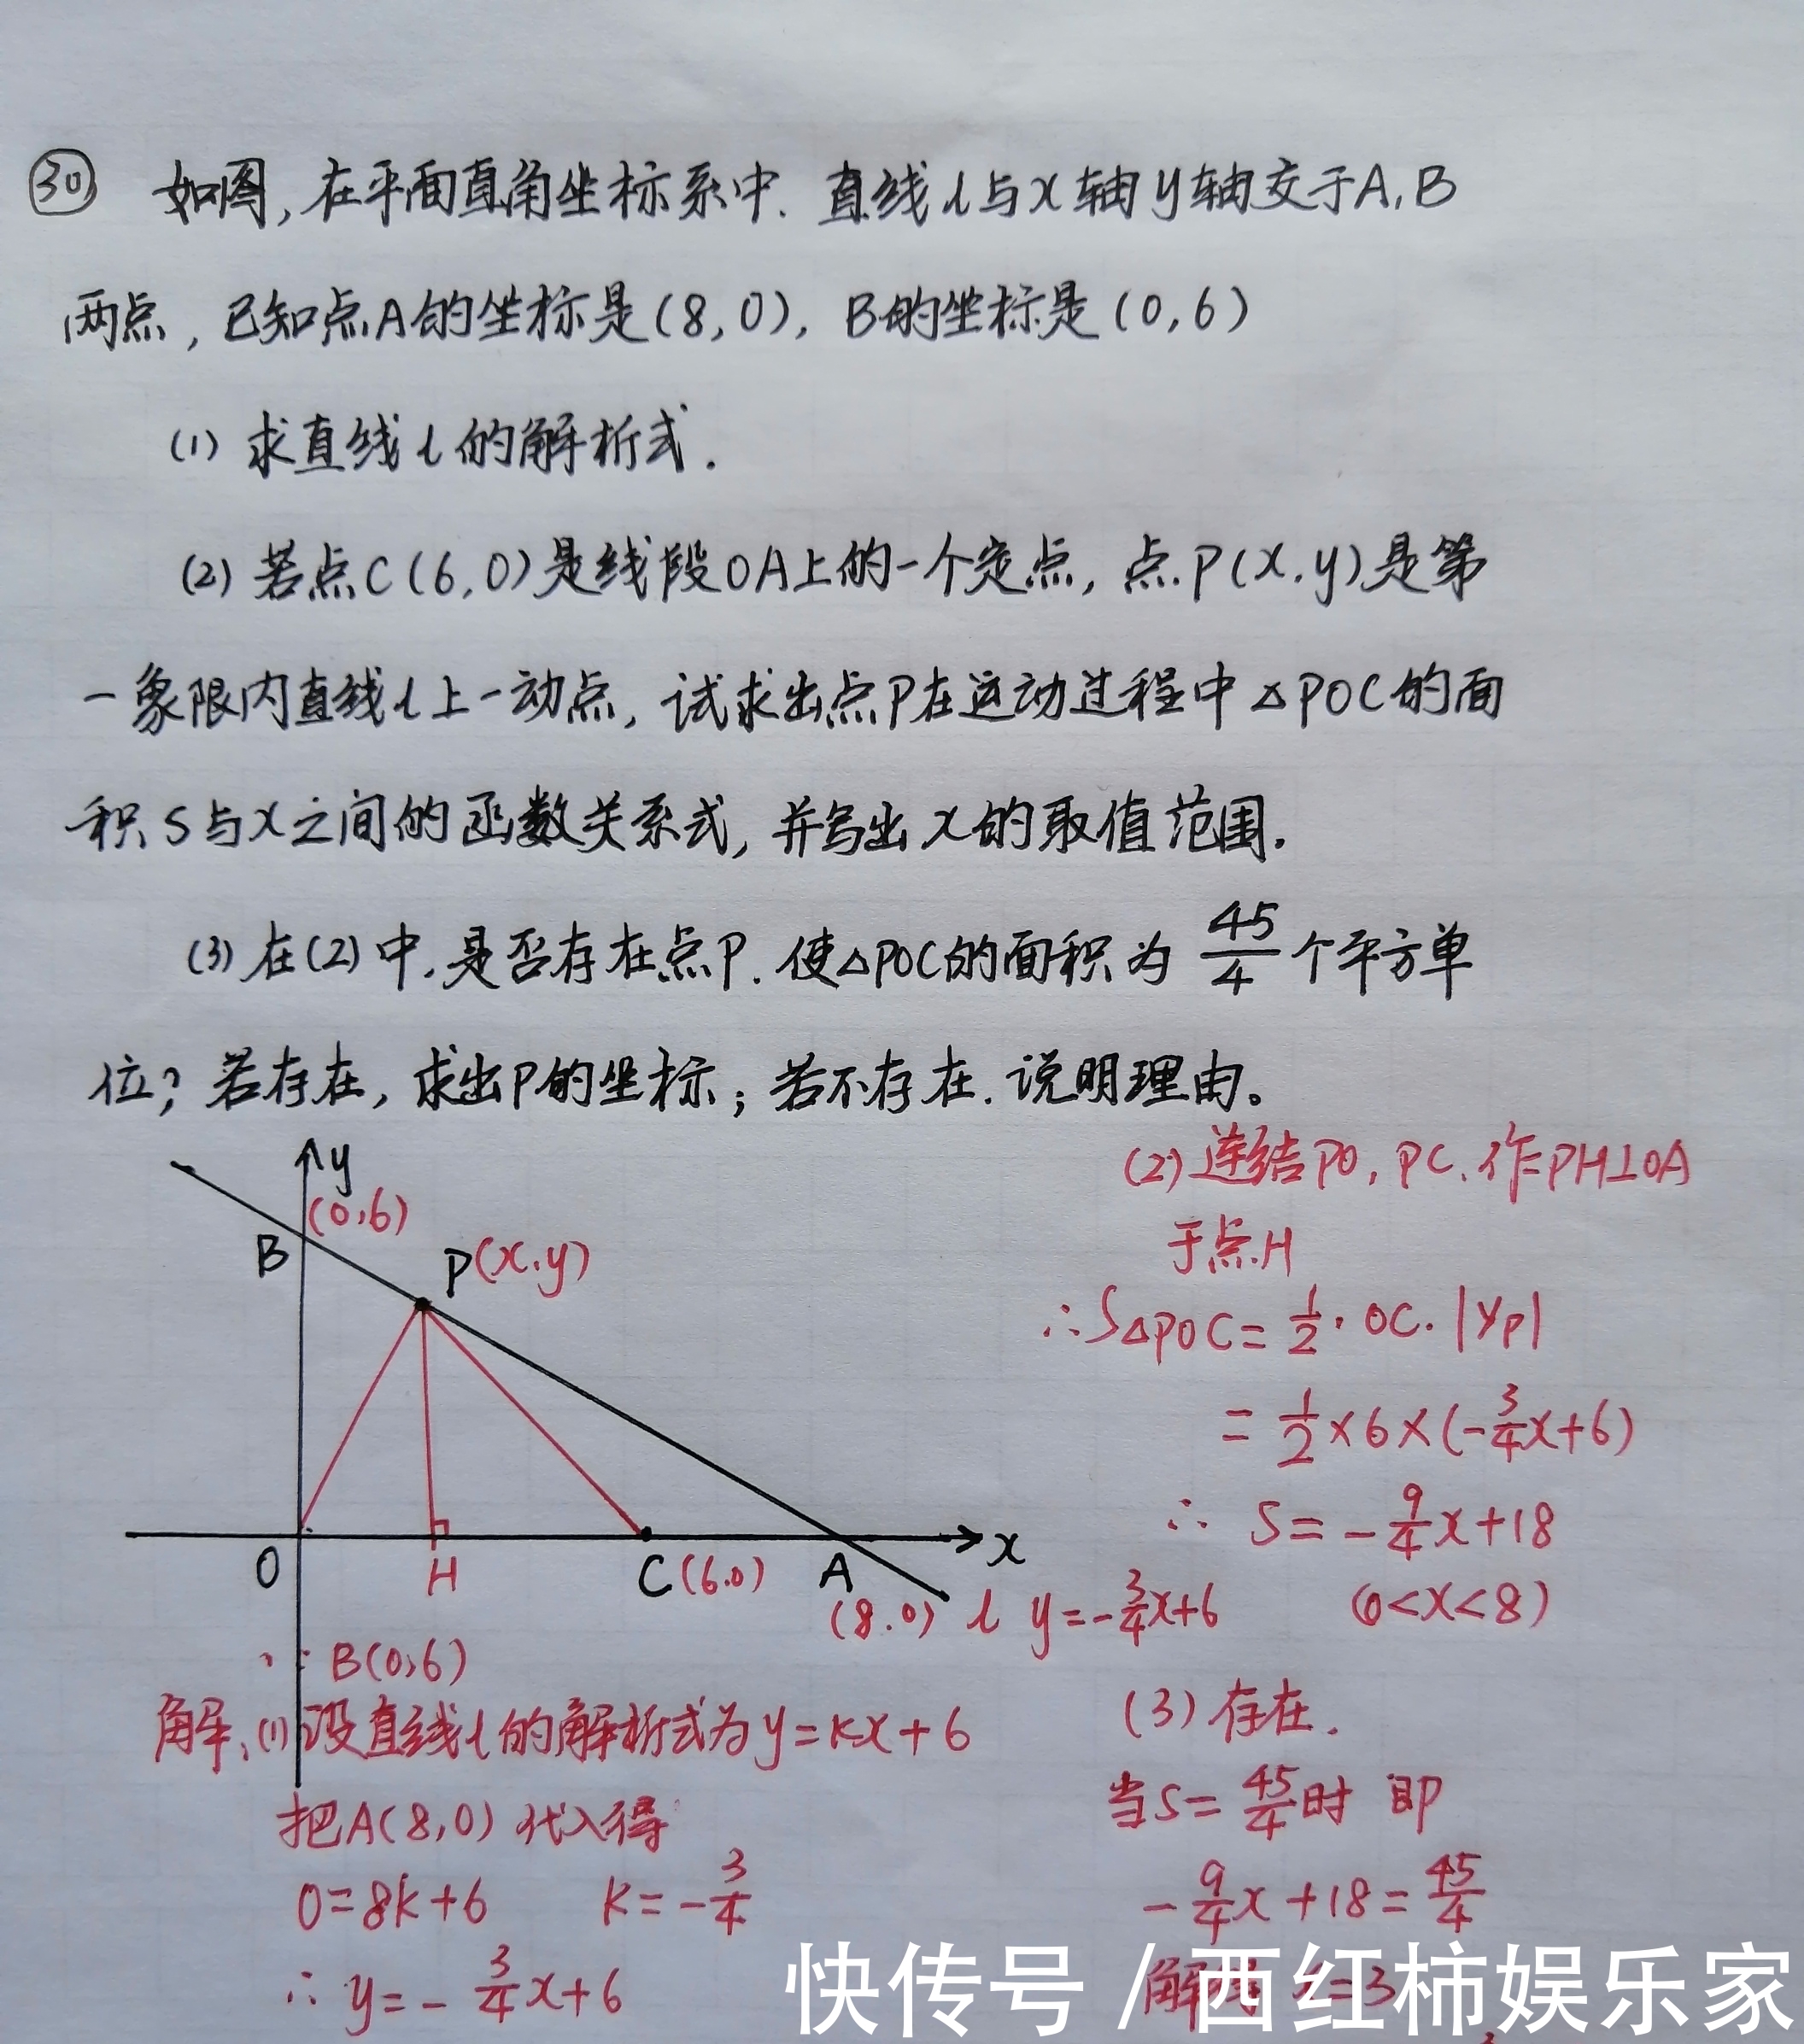 ㉚ 如图,在平面直角坐标系中.直线l与x轴y轴交于A,B
两点,已知点A的坐标是(8,0),B的坐标是(0,6)
(1)求直线l的解析式.
(2)若点C(6,0)是线段OA上的一个定点,点P(x.y)是第
一象限内直线l上一动点,试求出点P在运动过程中△POC的面
积S与x之间的函数关系式,并写出x的取值范围.
(3)在(2)中.是否存在点P.使△POC的面积为45/4个平方单
位?若存在,求出P的坐标;若不存在.说明理由。
y
(0,6)
B
P(x.y)
O
H
C(6.0)
A
x
(8.0)
l y=-3/4x+6
∵B(0,6)
解:(1)设直线l的解析式为y=kx+6
把A(8,0)代入得
0=8k+6 k=-3/4
∴y=-3/4x+6
(2)连结PO,PC.作PH⊥OA
于点H
∴S△POC=1/2·OC·|yP|
=1/2×6×(-3/4x+6)
∴ S=-9/4x+18
(0<x<8)
(3)存在.
当S=45/4时 即
-9/4x+18=45/4
解 x=3
快传号/西红柿娱乐家